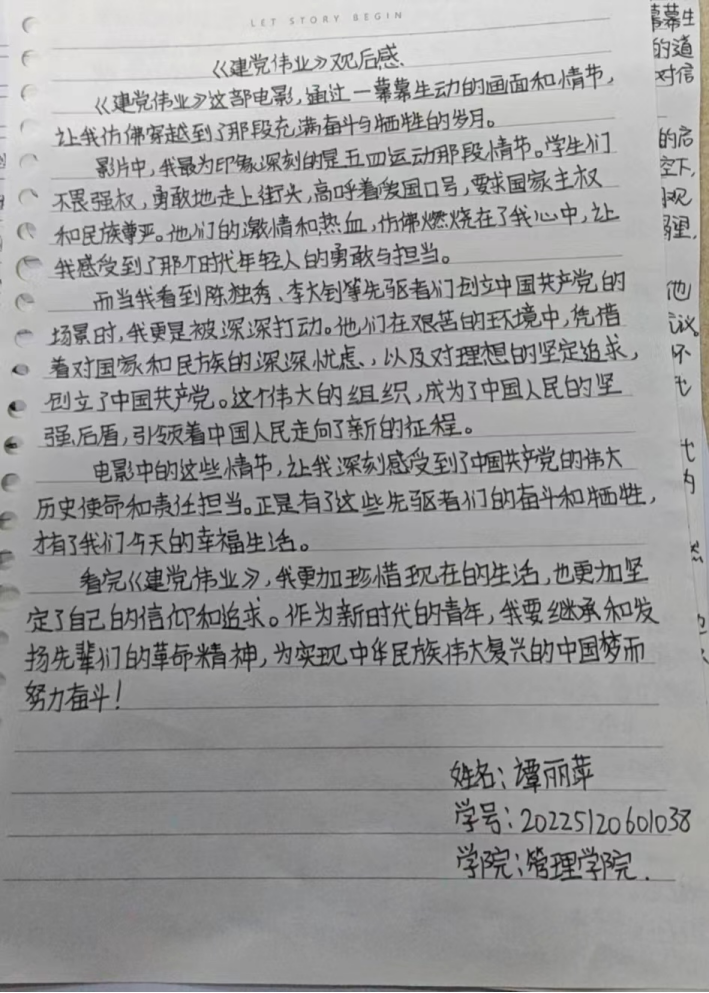 LET STORY BEGIN
《建党伟业》观后感
《建党伟业》这部电影,通过一幕幕生动的画面和情节,
让我仿佛穿越到了那段充满奋斗与牺牲的岁月。
影片中,我最为印象深刻的是五四运动那段情节。学生们
不畏强权,勇敢地走上街头,高呼着爱国口号,要求国家主权
和民族尊严。他们的激情和热血,仿佛燃烧在了我心中,让
我感受到了那个时代年轻人的勇敢与担当。
而当我看到陈独秀、李大钊等先驱者们创立中国共产党的
场景时,我更是被深深打动。他们在艰苦的环境中,凭借
着对国家和民族的深深忧虑、,以及对理想的坚定追求,
创立了中国共产党。这个伟大的组织,成为了中国人民的坚
强后盾,引领着中国人民走向了新的征程。
电影中的这些情节,让我深刻感受到了中国共产党的伟大
历史使命和责任担当。正是有了这些先驱者们的奋斗和牺牲,
才有了我们今天的幸福生活。
看完《建党伟业》,我更加珍惜现在的生活,也更加坚
定了自己的信仰和追求。作为新时代的青年,我要继承和发
扬先辈们的革命精神,为实现中华民族伟大复兴的中国梦而
努力奋斗!
姓名:谭丽萍
学号:20225120601038
学院:管理学院.
幕幕生
的道
对信
的启
空下,
观
他
议。